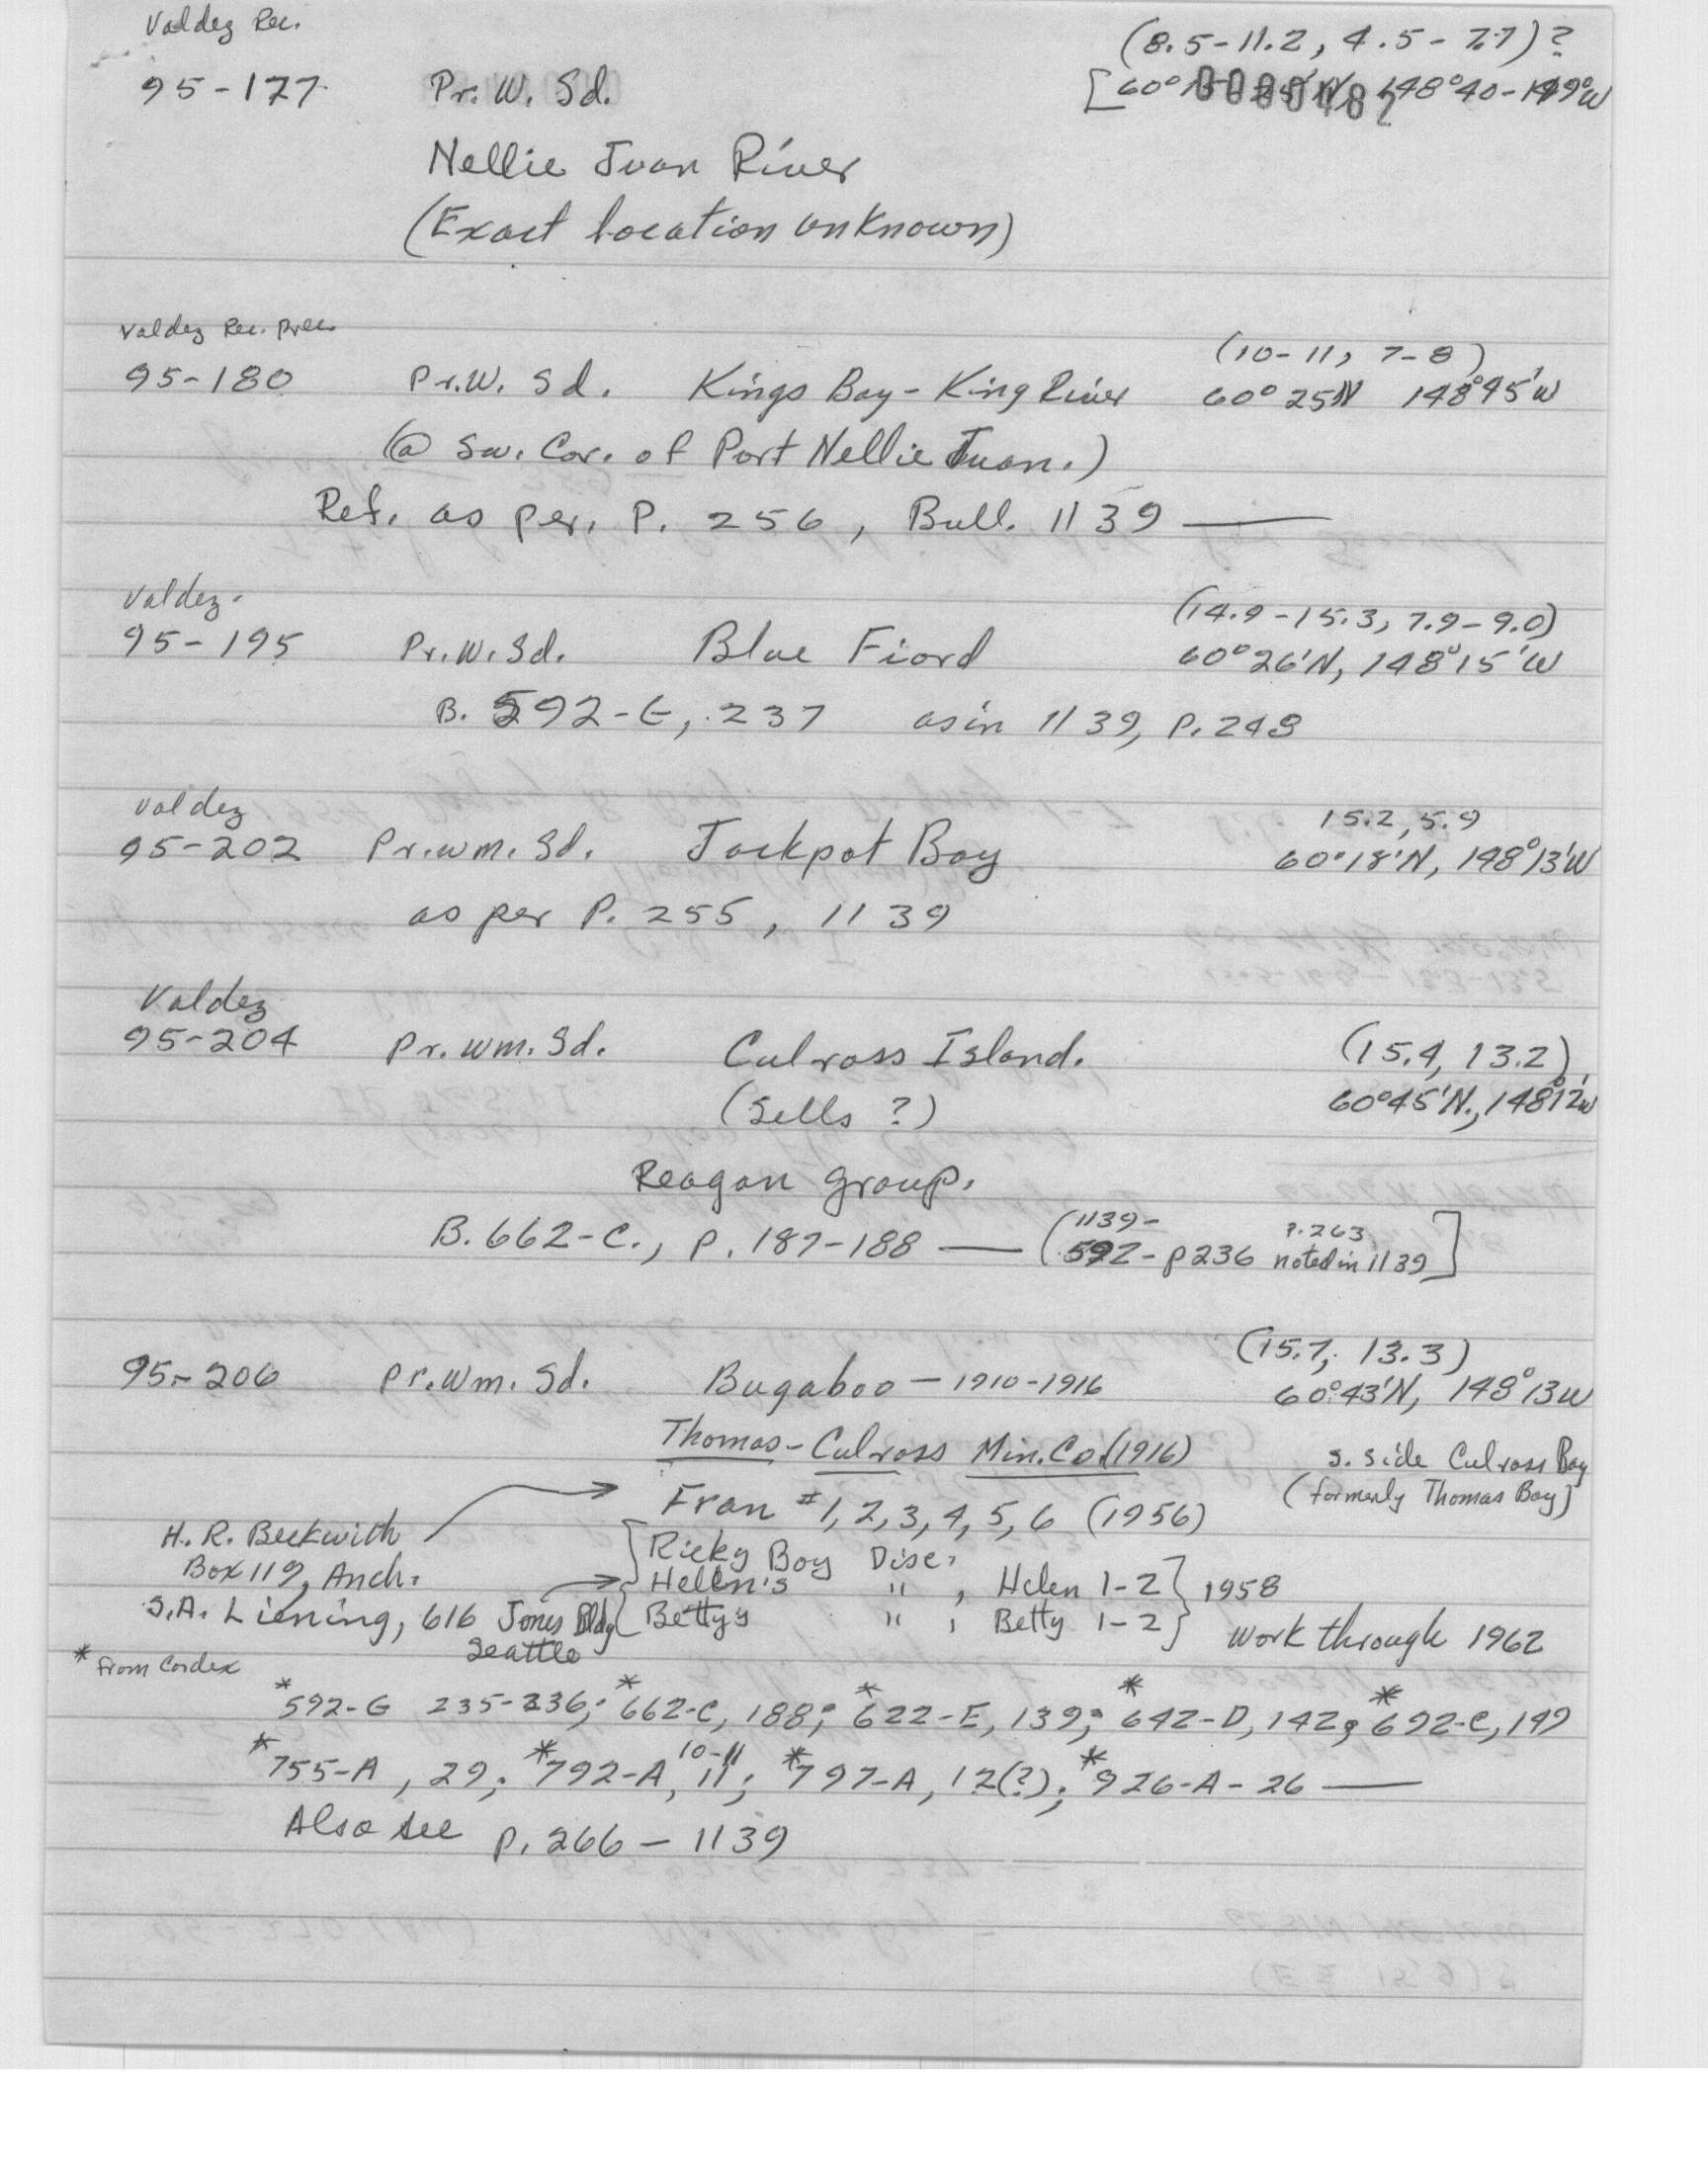 Valdez Rec.
(8.5-11.2, 4.5-7.7)?
95-177 Pr. W. Sd. [60° 148°40-149°W
Nellie Juan River
(Exact location unknown)
Valdez Rec. prec.
(10-11, 7-8)
95-180 Pr.W. Sd. Kings Bay - King River 60°25N 148°45'W
(@ Sw. Cor. of Port Nellie Juan.)
Ref. as per. P. 256, Bull. 1139 —
Valdez.
(14.9-15.3, 7.9-9.0)
95-195 Pr.W.Sd. Blue Fiord 60°26'N, 148°15'W
B. 592-E, 237 as in 1139, P.248
Valdez
15.2, 5.9
95-202 Pr.wm.Sd. Jackpot Bay 60°18'N, 148°13'W
as per P. 255, 1139
Valdez
95-204 Pr.wm.Sd. Culross Island. (15.4, 13.2)
(Sells ?) 60°45'N., 148°12'W
Reagan Group.
B. 662-C., p. 187-188 — (1139- P.263
592-p236 noted in 1139]
(15.7, 13.3)
95-206 Pr.Wm.Sd. Bugaboo - 1910-1916 60°43'N, 148°13W
Thomas-Culross Min.Co.(1916) S. Side Culross Bay
(formerly Thomas Bay)
Fran #1,2,3,4,5,6 (1956)
H. R. Beckwith
Box 119, Anch.
Ricky Boy Disc.
Hellen's " , Helen 1-2 } 1958
S.A. Liening, 616 Jones Bldg Betty's " , Betty 1-2
Seattle
Work through 1962
* From Cordex
*592-G 235-236; *662-C, 188; *622-E, 139; *642-D, 142; *692-C, 149
*755-A, 29; *792-A, 10-11 11; *797-A, 12(?); *926-A-26 —
Also see p. 266 - 1139